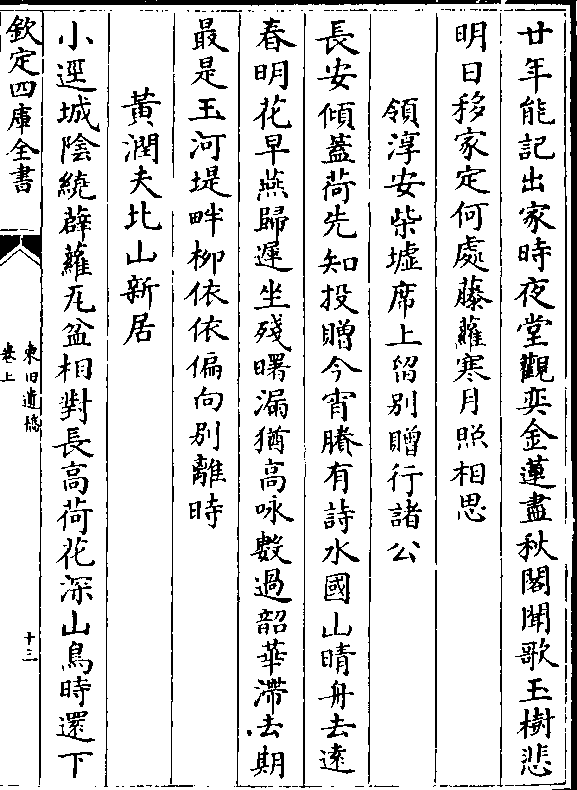 廿年能記出家時夜堂觀奕金蓮盡秋閣聞歌玉樹悲
明日移家定何處藤蘿寒月照相思
領淳安柴墟席上留別贈行諸公
長安傾蓋荷先知投贈今宵賸有詩水國山晴舟去遠
春明花早燕歸遲坐殘曙漏猶高咏數過韶華滯去期
最是玉河堤畔柳依依偏向別離時
黃潤夫北山新居
小逕城陰繞薜蘿瓦盆相對長高荷花深山鳥時還下
欽定四庫全書
東田遺稿
卷上
十三